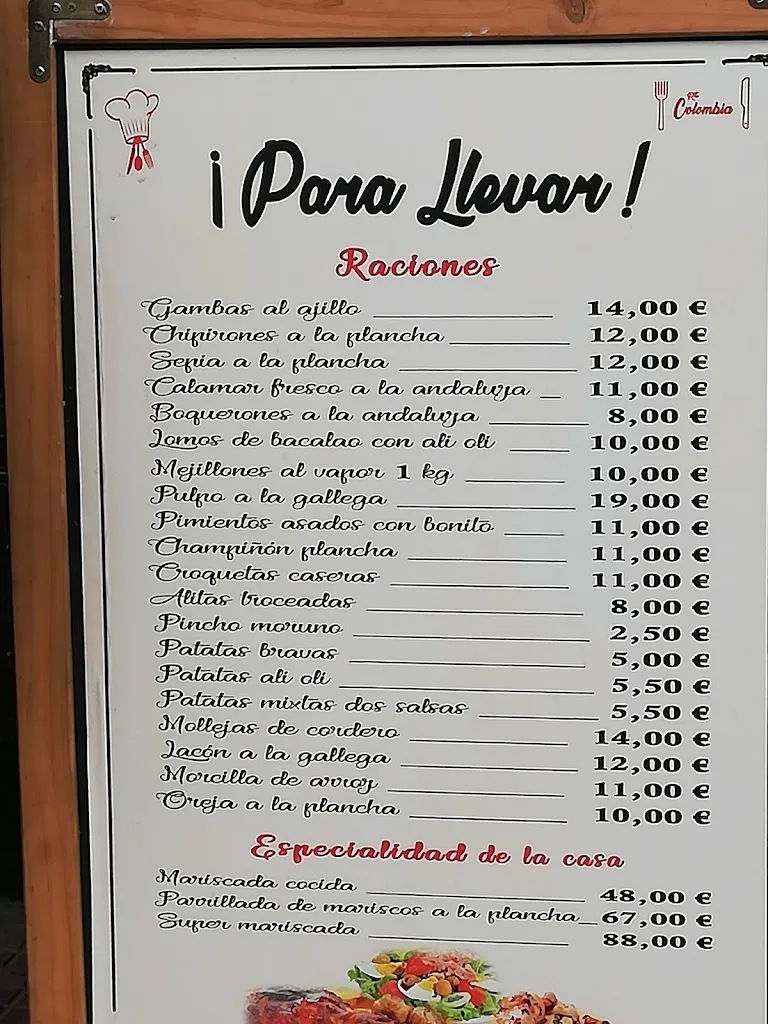 Rte
Colombia
¡Para Llevar!
Raciones
Gambas al ajillo 14,00 €
Chipirones a la plancha 12,00 €
Sepia a la plancha 12,00 €
Calamar fresco a la andaluza 11,00 €
Boquerones a la andaluza 8,00 €
Lomos de bacalao con ali oli 10,00 €
Mejillones al vapor 1 kg 10,00 €
Pulpo a la gallega 19,00 €
Pimientos asados con bonito 11,00 €
Champiñón plancha 11,00 €
Croquetas caseras 11,00 €
Alitas broceadas 8,00 €
Pincho moruno 2,50 €
Patatas bravas 5,00 €
Patatas ali oli 5,50 €
Patatas mixtas dos salsas 5,50 €
Mollejas de cordero 14,00 €
Lacón a la gallega 12,00 €
Morcilla de arroz 11,00 €
Oreja a la plancha 10,00 €
Especialidad de la casa
Mariscada cocida 48,00 €
Parrillada de mariscos a la plancha 67,00 €
Super mariscada 88,00 €